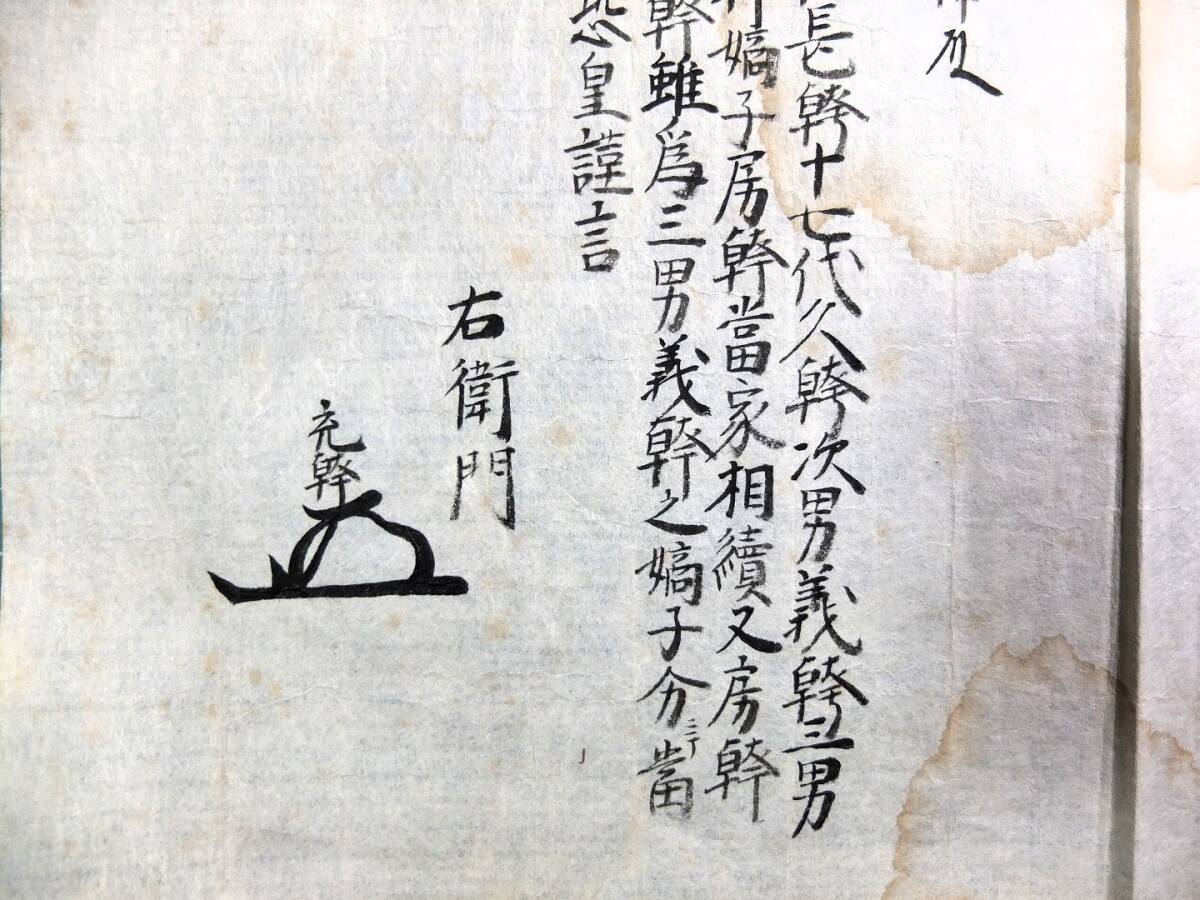 長幹十七代久幹次男義幹三男
嫡子房幹當家相續又房幹
幹雖爲三男義幹之嫡子分ニテ當
恐皇謹言
右衛門
充幹